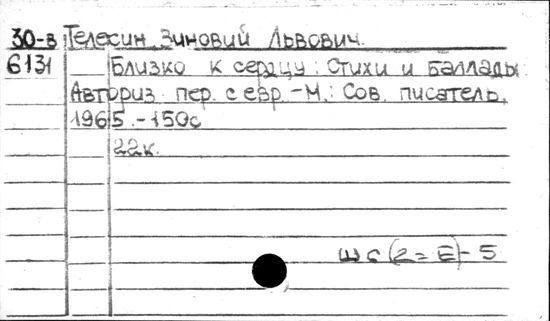 30-в Телесин, Зиновий Львович.
6131 Близко к сердцу: Стихи и баллады
Авториз. пер. с евр. - М.: Сов. писатель,
1965. - 150с
22к.
ш с (2=Е)-5